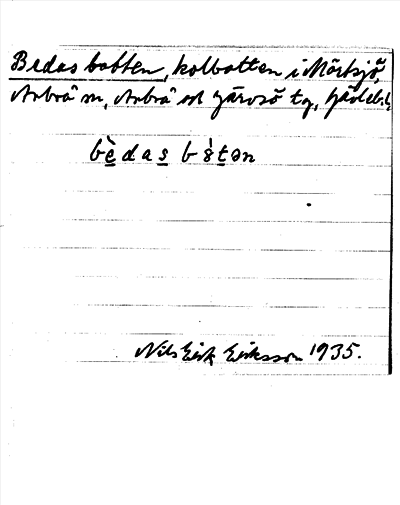 Bedas botten, kolbotten i Mörtsjö,
Arbrå sn, Arbrå och Järvsö tg, Gävleb. l.
bèdas bòtən
Nils Erik Eriksson 1935.